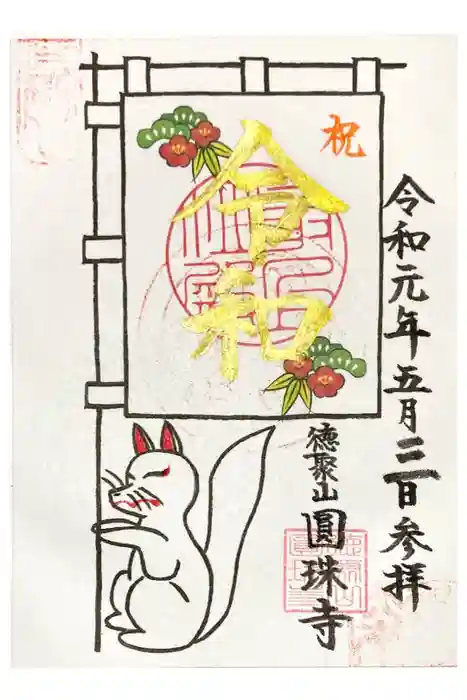 祝
令和
令和元年五月三日参拝
徳聚山
圓珠寺